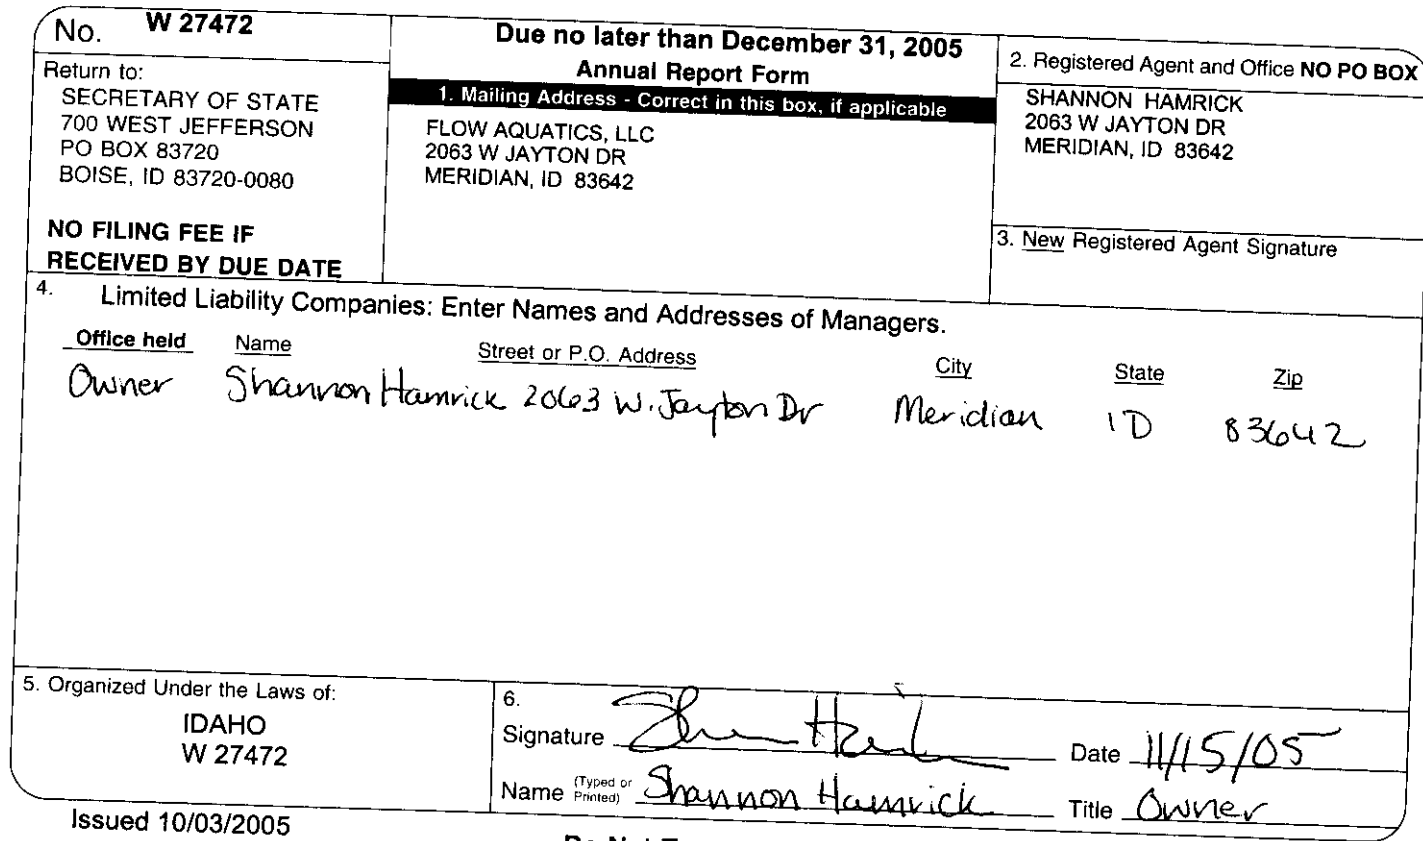 No. W 27472
Return to:
SECRETARY OF STATE
700 WEST JEFFERSON
PO BOX 83720
BOISE, ID 83720-0080
NO FILING FEE IF
RECEIVED BY DUE DATE
Due no later than December 31, 2005
Annual Report Form
1. Mailing Address - Correct in this box, if applicable
FLOW AQUATICS, LLC
2063 W JAYTON DR
MERIDIAN, ID 83642
2. Registered Agent and Office NO PO BOX
SHANNON HAMRICK
2063 W JAYTON DR
MERIDIAN, ID 83642
3. New Registered Agent Signature
4. Limited Liability Companies: Enter Names and Addresses of Managers.
Office held Name Street or P.O. Address City State Zip
Owner Shannon Hamrick 2063 W. Jayton Dr Meridian ID 83642
5. Organized Under the Laws of:
IDAHO
W 27472
6.
Signature Date 11/15/05
Name (Typed or Printed) Shannon Hamrick Title Owner
Issued 10/03/2005